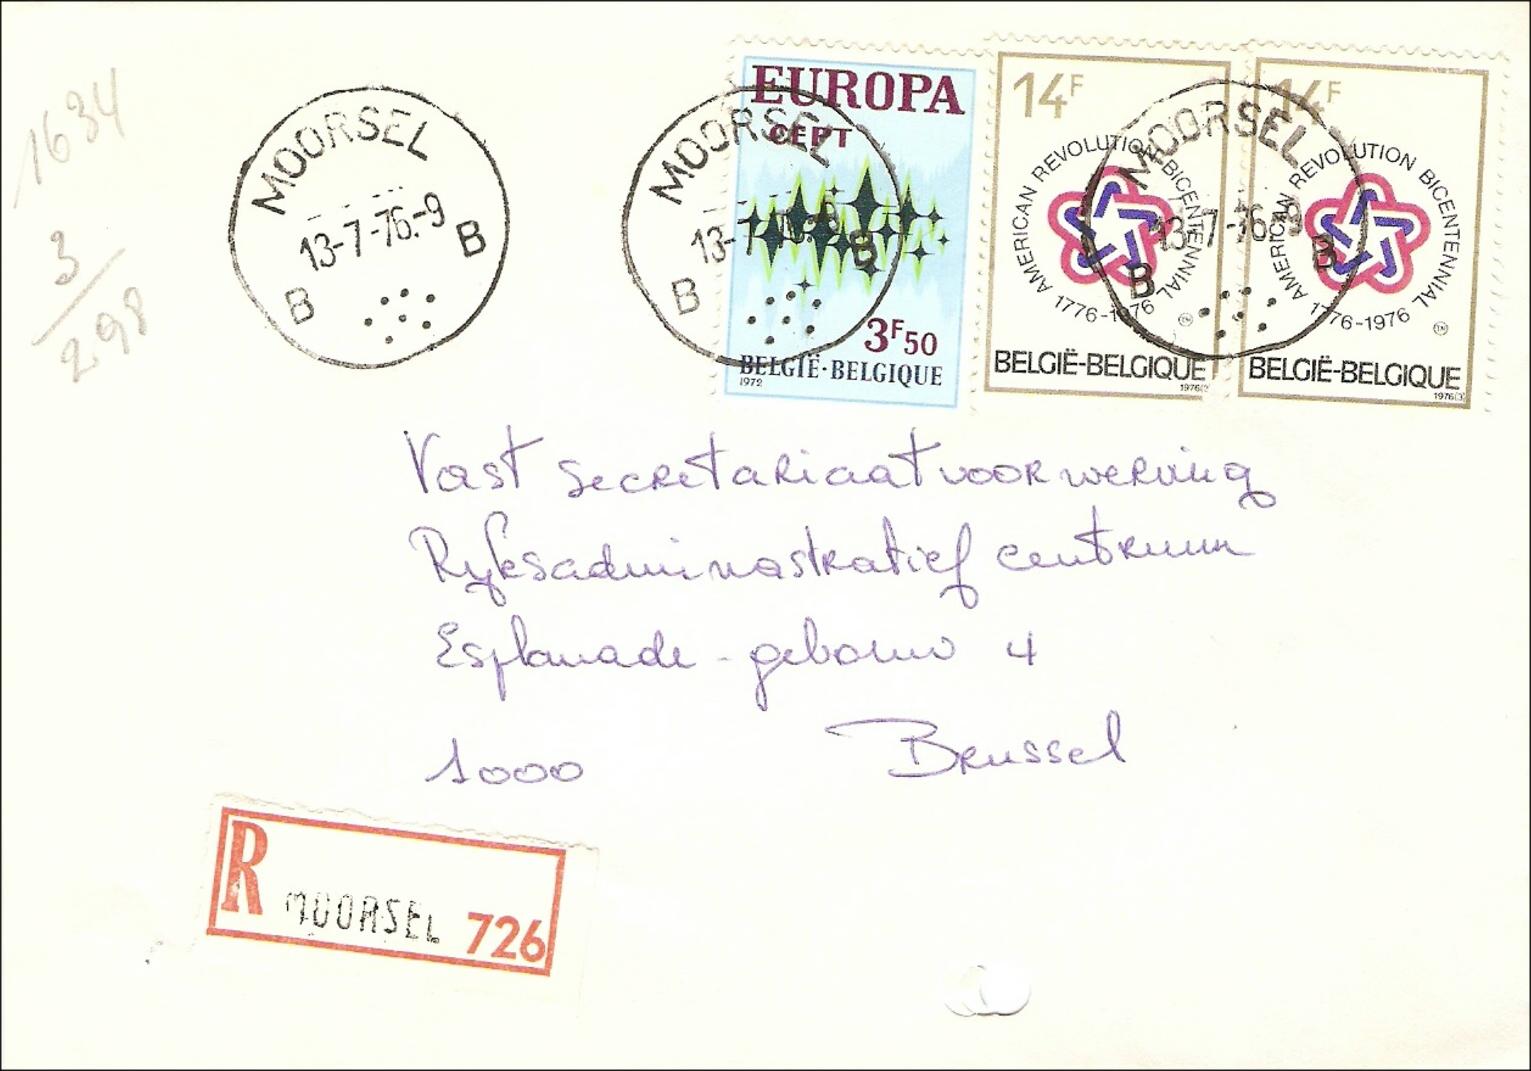 1634
3/298
MOORSEL
13-7-76.-9
B B
MOORSEL
13-7
B B
EUROPA
CEPT
3F50
BELGIË·BELGIQUE
1972
14F
AMERICAN REVOLUTION BICENTENNIAL
1776-1976
TM
BELGIË-BELGIQUE
1976(2)
MOORSEL
13-7-76.-9
B B
14F
AMERICAN REVOLUTION BICENTENNIAL
1776-1976
TM
BELGIË-BELGIQUE
1976(3)
Vast secretariaat voor werving
Ryksadministratief centrum
Esplanade - gebouw 4
1000 Brussel
R MOORSEL 726